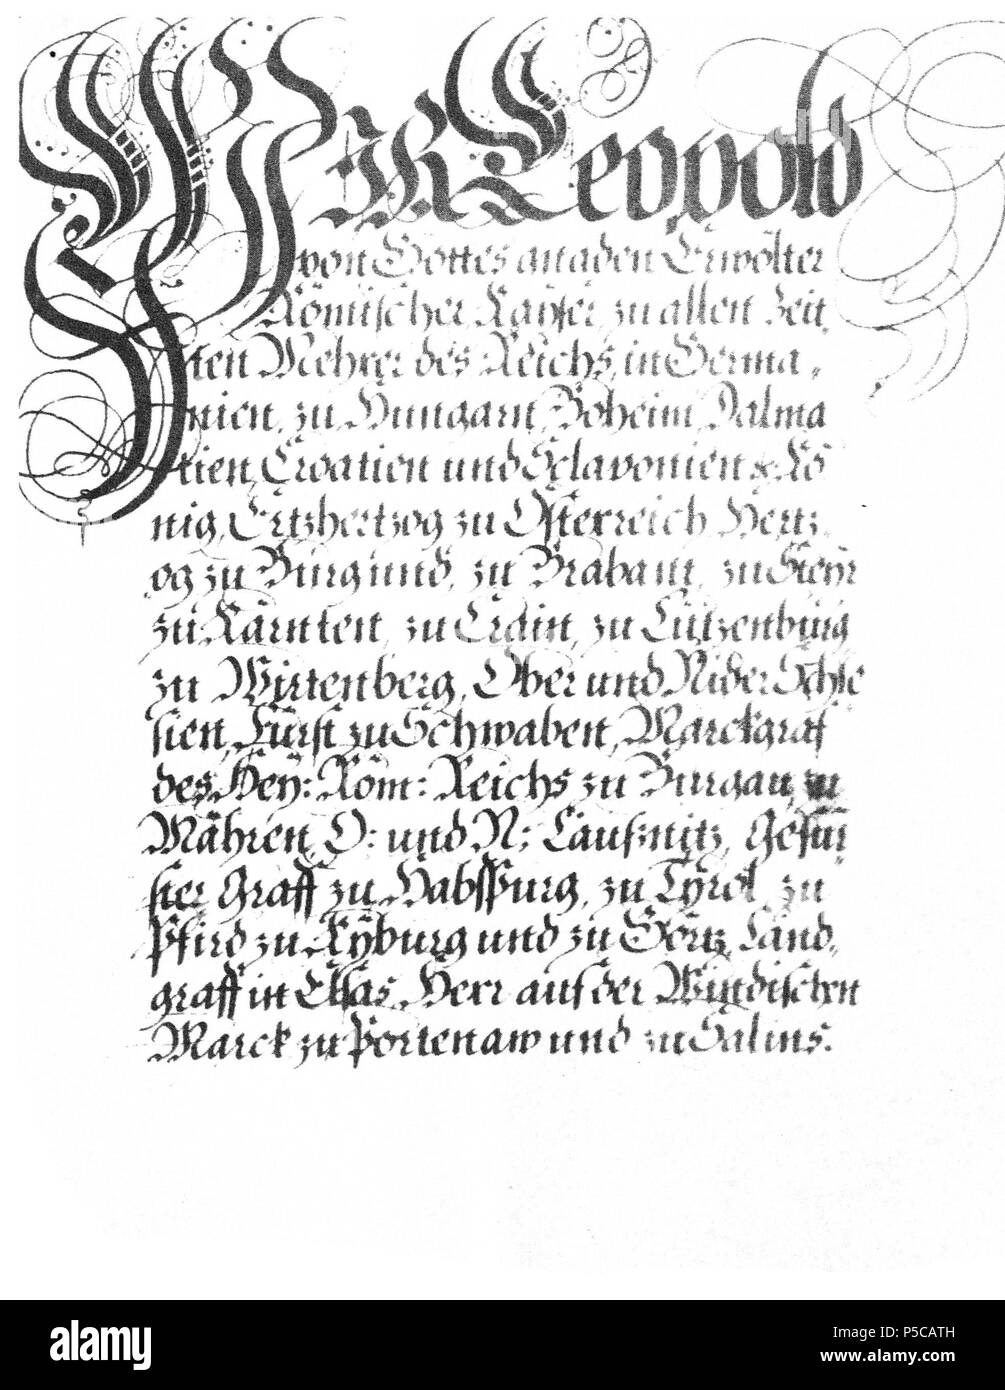 Wir Leopold
von Gottes gnaden Erwölter
Römischer Kayser, zu allen Zeit
ten Mehrer des Reichs, in Germa,
nien, zu Hungarn, Boheim, Dalma
tien, Croatien und Sclavonien &. Kö
nig, Ertzhertzog zu Österreich, Hertz,
og zu Burgund, zu Brabant, zu Steyr
zu Kärnten, zu Crain, zu Lützenburg
zu Wirtenberg, Ober und Nider Schle
sien, Fürst zu Schwaben, Marckgraf
des Hey: Röm: Reichs zu Burgau, zu
Mähren, O: und N: Laußnitz, Gefür
ster Graff zu Habsspurg, zu Tyrol, zu
Pfird zu Kyburg und zu Görtz, Land,
graff in Elsas, Herr auf der Windischen
Marck zu Portenaw und zu Salins.
alamy
Image ID: P5CATH
www.alamy.com